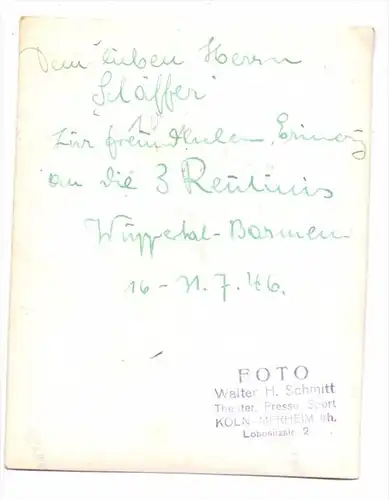 Dem lieben Herrn
"Schäffer"
zur freundlichen Erinnerg
an die 3 Reutinis
Wuppertal-Barmen
16-31.7.46.
FOTO
Walter H. Schmitt
Theater, Presse Sport
KÖLN-MERHEIM lrh.